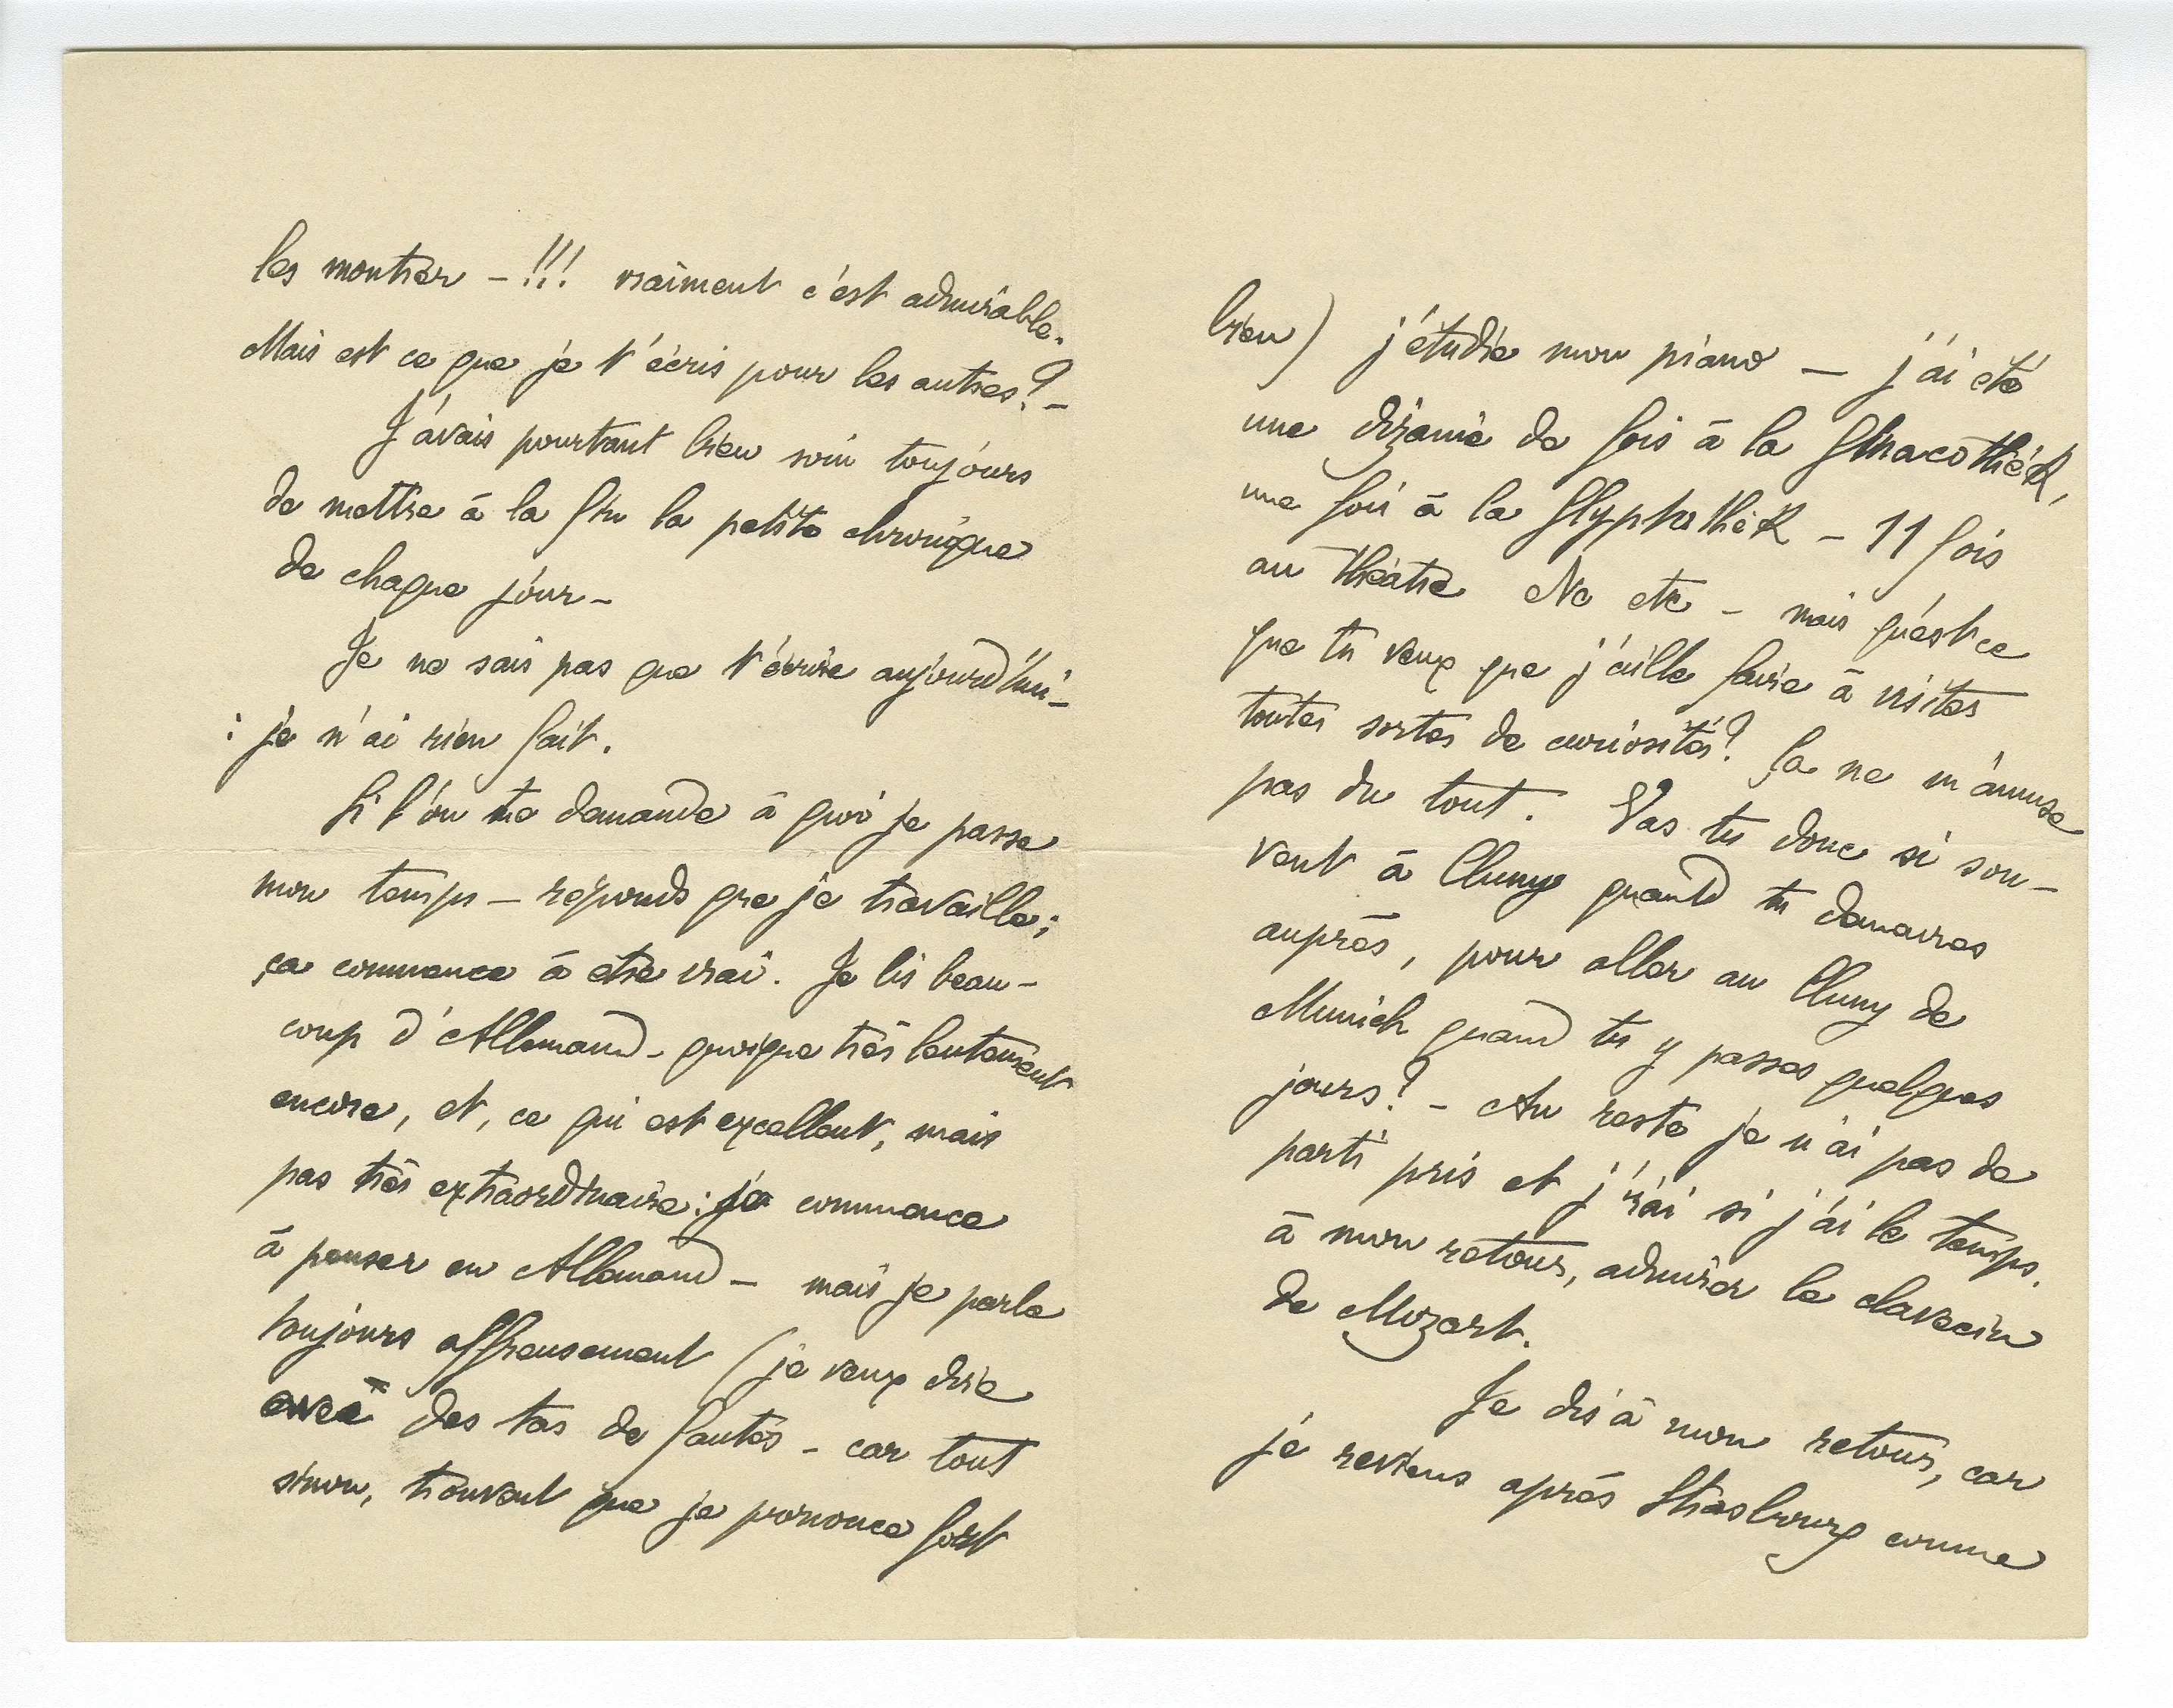 les montrer – !!! vraiment c'est admirable.
Mais est ce que je t'écris pour les autres? –
J'avais pourtant bien soin toujours
de mettre à la fin la petite chronique
de chaque jour –
Je ne sais pas que t'écrire aujourd'hui –
: je n'ai rien fait.
Si l'on te demande à quoi je passe
mon temps – réponds que je travaille ;
ça commence à être vrai. Je lis beau-
coup d'Allemand – quoique très lentement
encore, et, ce qui est excellent, mais
pas très extraordinaire : je commence
à penser en Allemand – mais je parle
toujours affreusement (je veux dire
avec des tas de fautes – car tout
sinon, trouvent que je prononce fort
bien) j'étudie mon piano – j'ai été
une dizaine de fois à la Pinacothèk,
une fois à la Glyptothèk – 11 fois
au théâtre etc etc – mais qu'est ce
que tu veux que j'aille faire à visiter
toutes sortes de curiosités? Ça ne m'amuse
pas du tout. Vas tu donc si sou-
vent à Cluny quand tu demeures
auprès, pour aller au Cluny de
Munich quand tu y passes quelques
jours? – Au reste je n'ai pas de
parti pris et j'irai si j'ai le temps,
à mon retour, admirer le clavecin
de Mozart.
Je dis à mon retour, car
je reviens après Strasbourg comme